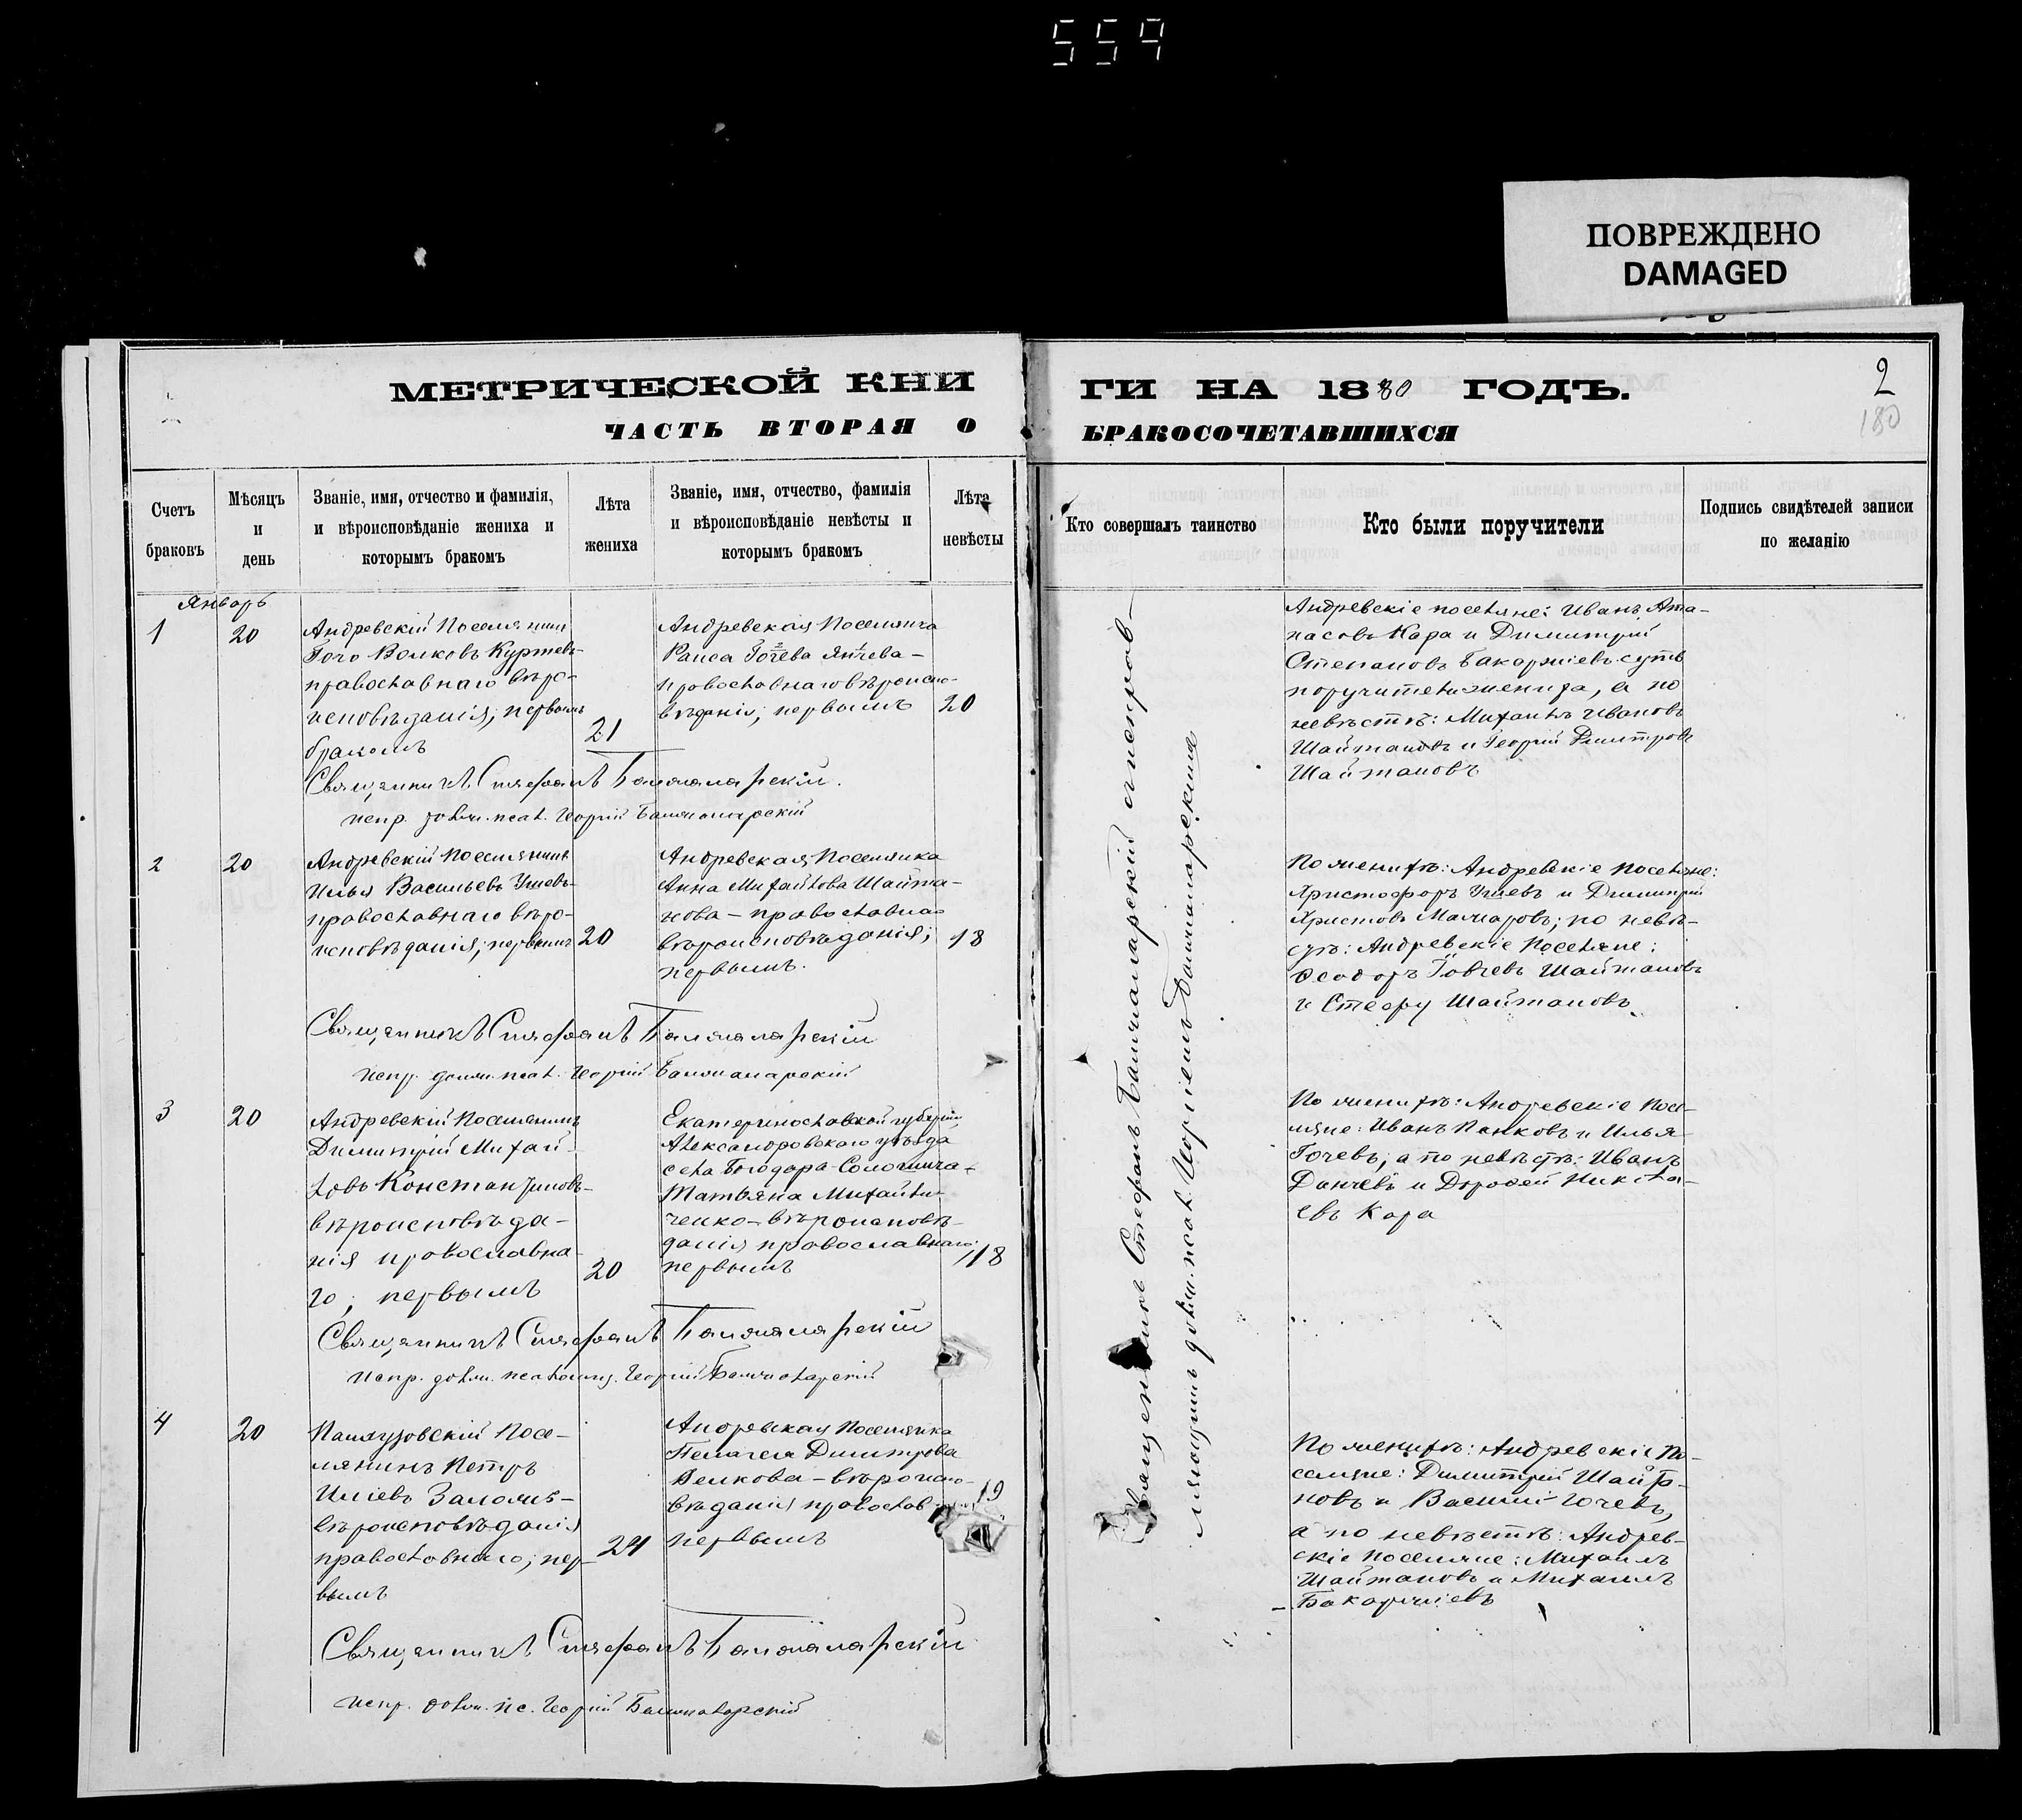 559
ПОВРЕЖДЕНО
DAMAGED
МЕТРИЧЕСКОЙ КНИ
ЧАСТЬ ВТОРАЯ О
ГИ НА 1880 ГОДЪ.
БРАКОСОЧЕТАВШИХСЯ
2
180
Счетъ браковъ
Мѣсяцъ и день
Званіе, имя, отчество и фамилія,
и вѣроисповѣданіе жениха и
которымъ бракомъ
Лѣта жениха
Званіе, имя, отчество, фамилія
и вѣроисповѣданіе невѣсты и
которымъ бракомъ
Лѣта невѣсты
Кто совершалъ таинство
Кто были поручители
Подпись свидѣтелей записи
по желанію
Январь
1
20
Андревскій Поселянинъ
Гочо Волковъ Куртевъ-
православнаго вѣро-
исповѣданія; первымъ
бракомъ
21
Андревская Поселянка
Раиса Гочева Янчева-
православнаго вѣроиспо-
вѣданія; первымъ
20
Андревскіе поселяне: Иванъ Ата-
насовъ Кара и Димитрій
Степановъ Бакаржіевъ суть
поручители жениха, а по
невѣстѣ: Михаилъ Ивановъ
Шайтановъ и Георгій Димитровъ
Шайтановъ
Священникъ Стефанъ
испр. должн. псал. Георгій
2
20
Андревскій Поселянинъ
Илья Васильевъ
православнаго вѣро-
исповѣданія; первымъ
20
Андревская Поселянка
Анна Михайлова Шайта-
нова - православна
вѣроисповѣданія;
первымъ.
18
По женихѣ: Андревскіе Поселяне:
Христофоръ и Димитрій
Христовъ; по невѣ-
стѣ: Андревскіе Поселяне:
Ѳеодоръ Шайтановъ
и Шайтановъ.
Священникъ Стефанъ
испр. должн. псал. Георгій
3
20
Андревскій Поселянинъ
Димитрій Михай-
ловъ Константиновъ-
вѣроисповѣда-
нія православна-
го; первымъ
20
Екатеринославской губерніи,
Александровскаго уѣзда
села
Татьяна Михайли-
ченко - вѣроисповѣ-
данія православнаго;
первымъ
18
По женихѣ: Андревскіе Посе-
ляне: Иванъ Пенковъ и Илья
Гочевъ, а по невѣстѣ: Иванъ
Данчевъ и Дороѳей Никола-
евъ Кара
Священникъ Стефанъ
испр. должн. Георгій
4
20
Посе-
лянинъ Петръ
Иліевъ
вѣроисповѣданія
православнаго; пер-
вымъ
24
Андревская Поселянка
Пелагея Димитрова
Велкова - вѣроиспо-
вѣданія православ
первымъ
19
По женихѣ: Андревскіе По-
селяне: Димитрій Шайта-
новъ и Василій Гочевъ,
а по невѣстѣ: Андрев-
скіе поселяне: Михаилъ
Шайтановъ и Михаилъ
Бакаржіевъ
Священникъ Стефанъ
испр. должн. пс. Георгій
Священникъ Стефанъ
должн. псал. Георгіемъ